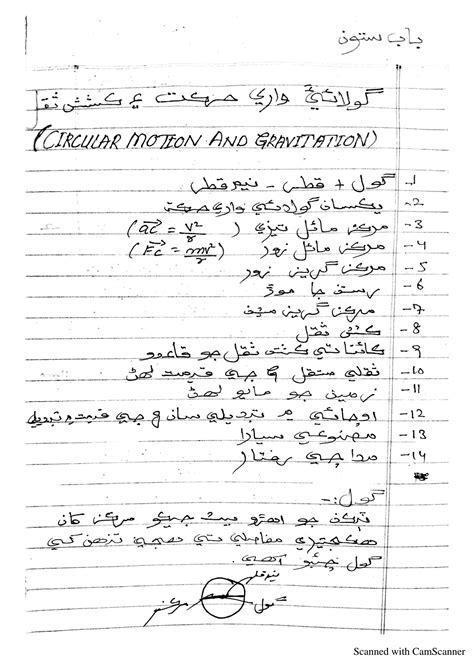 باب ستون
گولائيءَ واري حرڪت ۽ ڪشش ثقل
(CIRCULAR MOTION AND GRAVITATION)
1- گول + قطر - نيم قطر
2- يڪسان گولائي واري حرڪت
3- مرڪز مائل تيزي (ac = v²/r)
4- مرڪز مائل زور (Fc = mv²/r)
5- مرڪز گريز زور
6- رستن جا موڙ
7- مرڪز گريز مشين
8- ڪشش ثقل
9- ڪائناتي ڪشش ثقل جو قاعدو
10- ثقلي مستقل G جي قيمت لهڻ
11- زمين جو مايو لهڻ
12- اوچائي ۾ تبديلي سان g جي قيمت ۾ تبديلي
13- مصنوعي سيارا
14- مدا جي رفتار
گول:-
ٽپڪن جو اهڙو سيٽ جيڪو مرڪز کان
هڪجيتري مفاصلي تي هجي تنهن کي
گول چئبو آهي.
نيم قطر
مرڪز
گول
Scanned with CamScanner